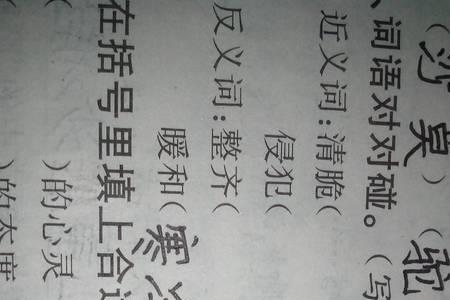 （沙 ） （驼
、词语对对碰。（写
近义词：清脆（
侵犯（
反义词：整齐（
暖和（寒
在括号里填上合
（ ）的心灵
（ ）的态度